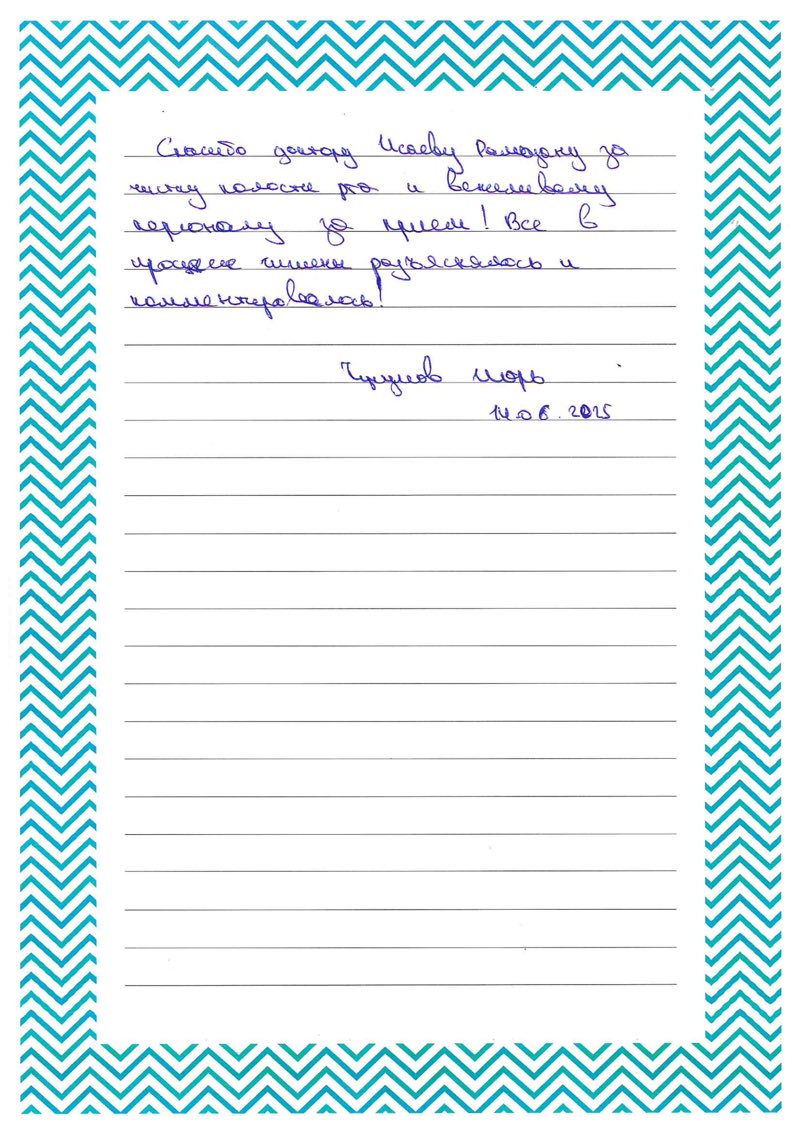 Спасибо доктору Исаеву Рамазану за
чистку полости рта и вежливому
персоналу за прием! Все в
процессе гигиены разъяснялось и
комментировалось!
Игорь
14.06.2025